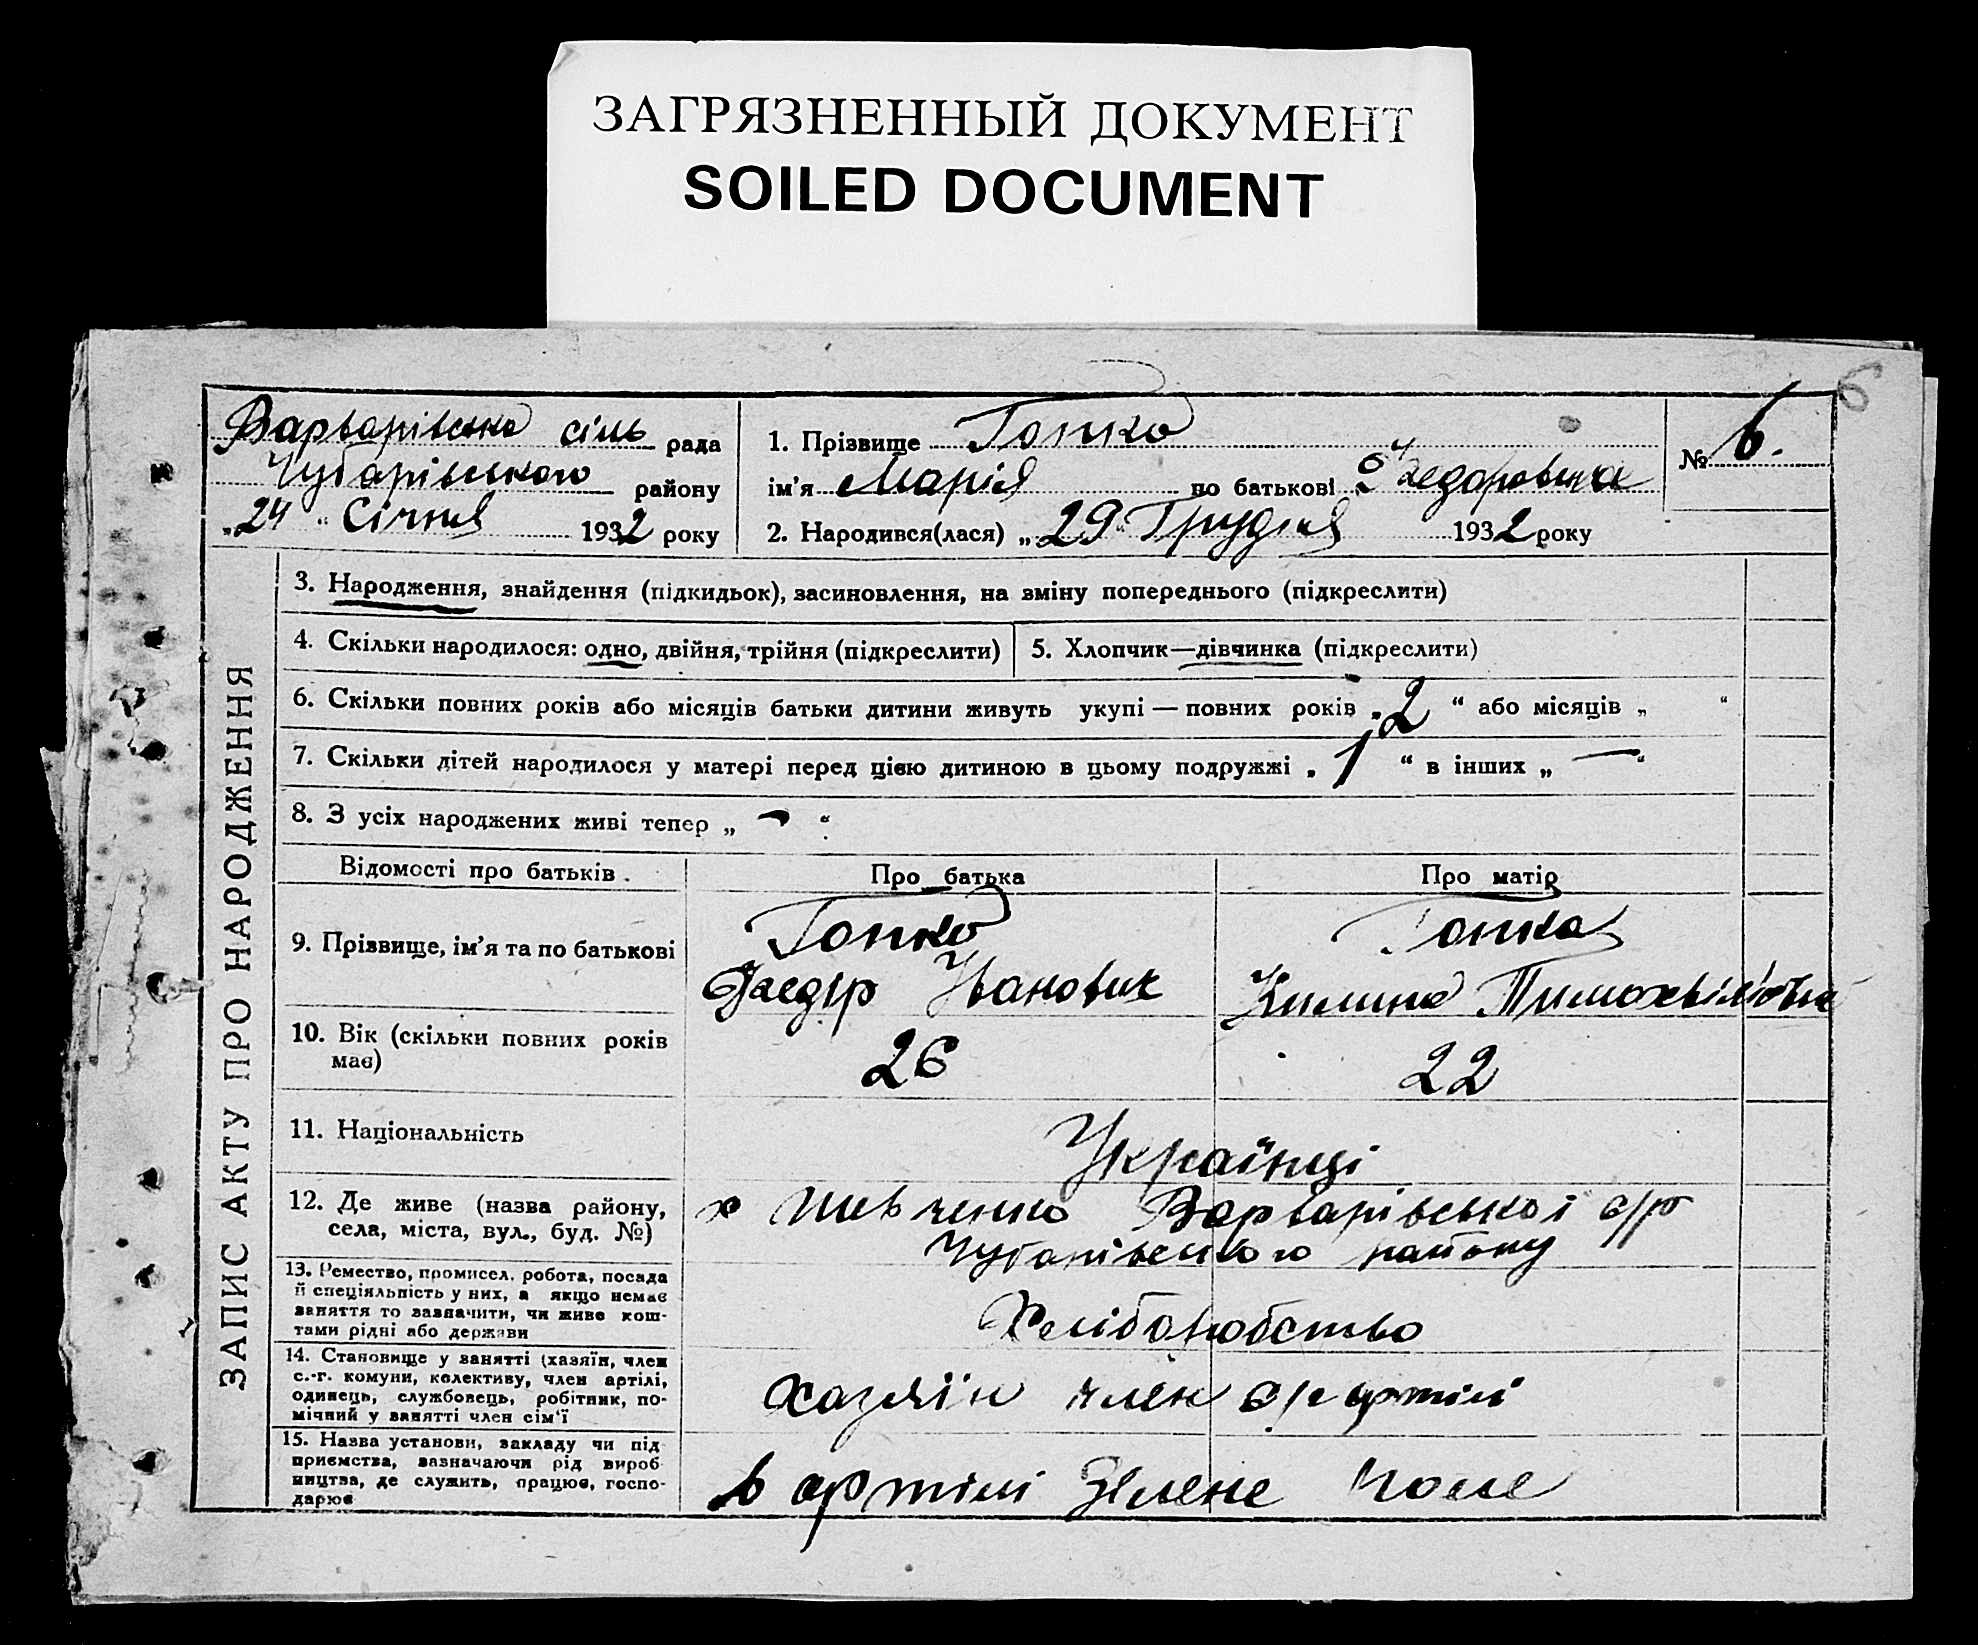 ЗАГРЯЗНЕННЫЙ ДОКУМЕНТ
SOILED DOCUMENT
6
Варварівська сіль рада
Чубарівського району
„24“ Січня 1932 року
1. Прізвище Гопко
ім’я Марія по батькові Хведоровна
2. Народився(лася) „29“ Грудня 1932 року
№ 6.
ЗАПИС АКТУ ПРО НАРОДЖЕННЯ
3. Народження, знайдення (підкидьок), засиновлення, на зміну попереднього (підкреслити)
4. Скільки народилося: одно, двійня, трійня (підкреслити)
5. Хлопчик—дівчинка (підкреслити)
6. Скільки повних років або місяців батьки дитини живуть укупі — повних років „2“ або місяців „ “
7. Скільки дітей народилося у матері перед цією дитиною в цьому подружжі „1“ в інших „—“
8. З усіх народжених живі тепер „-“
Відомості про батьків. Про батька Про матір
9. Прізвище, ім’я та по батькові
Гопко
Хведір Іванович
Гопка
Килина Тимохвіївна
10. Вік (скільки повних років
має)
26
22
11. Національність
Українці
12. Де живе (назва району,
села, міста, вул., буд. №)
х Шевченко Варварівської с/р
Чубарівського району
13. Ремество, промисел, робота, посада
й спеціяльність у них, а якщо немає
заняття то зазначити, чи живе кош-
тами рідні або держави
Хліборобство
14. Становище у занятті (хазяїн, член
с.-г. комуни, колективу, член артілі,
одинець, службовець, робітник, по-
мічний у занятті член сім’ї
хазяїн член с/г артілі
15. Назва установи, закладу чи під
приємства, зазначаючи рід вироб
ництва, де служить, працює, госпо-
дарює
в артілі Зелене Поле